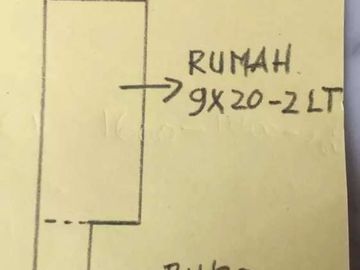 RUMAH.
9X20-2LT